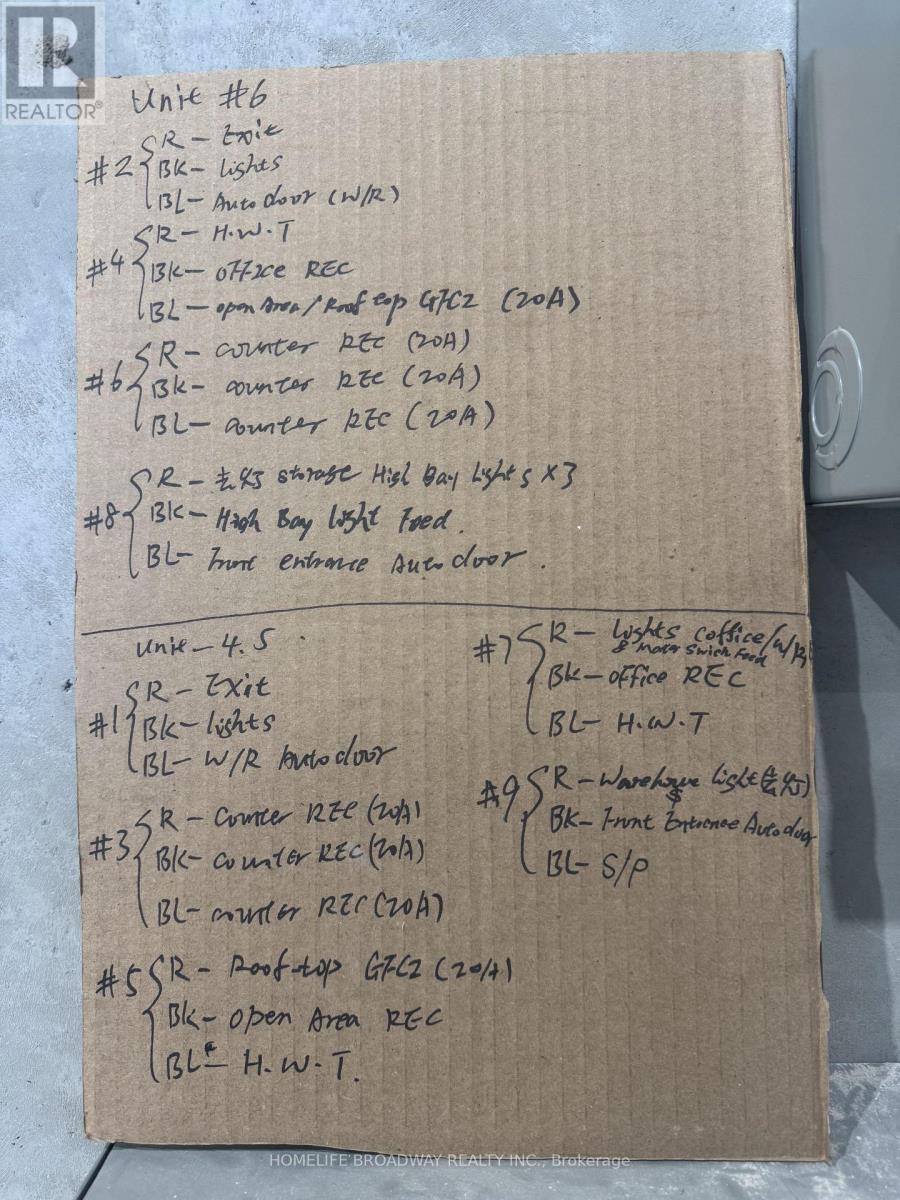 REALTOR®
Unit #6
#2 R - Exit
BK - lights
BL - Auto door (W/R)
#4 R - H.W.T
BK - office REC
BL - open Area/Roof top GFCI (20A)
#6 R - counter REC (20A)
BK - counter REC (20A)
BL - counter REC (20A)
#8 R - storage High Bay Lights x3
BK - High Bay light Feed.
BL - Front entrance Auto door.
Unit - 4.5
#1 R - Exit
BK - lights
BL - W/R Auto door
#3 R - Counter REC (20A)
BK - counter REC (20A)
BL - counter REC (20A)
#5 R - Roof-top GFCI (20A)
BK - Open Area REC
BL - H.W.T.
#7 R - Lights (office/W/R)
& Motor Swich Feed
BK - office REC
BL - H.W.T
#9 R - Warehouse light
BK - Front Entrence Auto door
BL - S/P
HOMELIFE BROADWAY REALTY INC., Brokerage